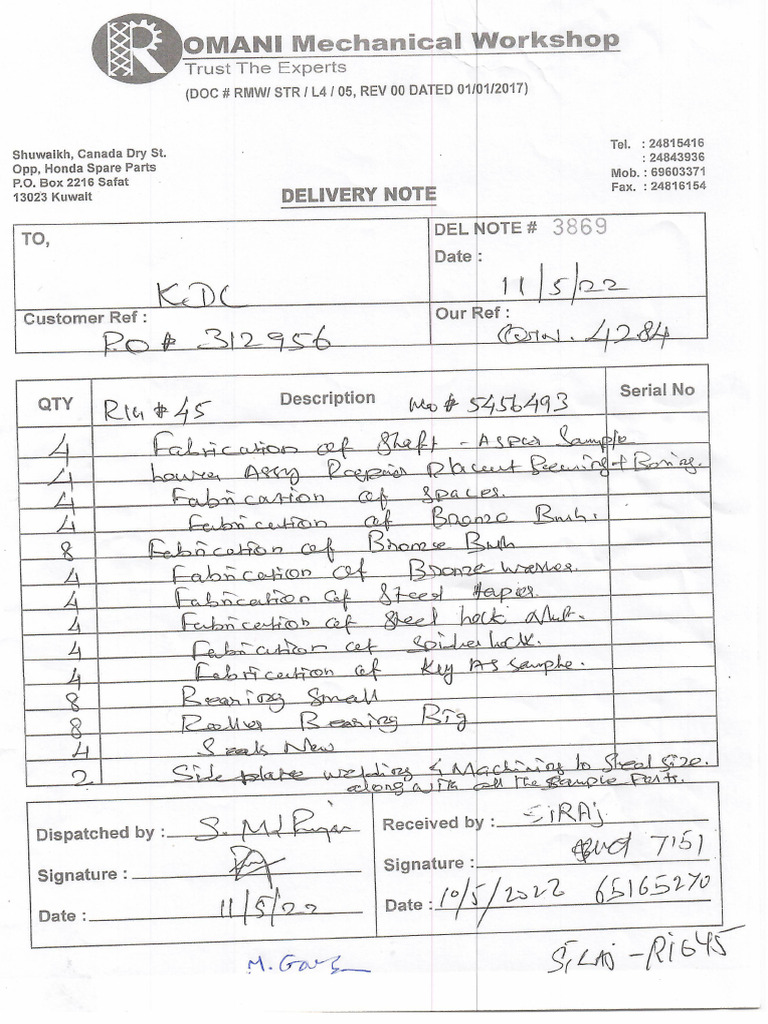 ROMANI Mechanical Workshop
Trust The Experts
(DOC # RMW/ STR / L4 / 05, REV 00 DATED 01/01/2017)
Shuwaikh, Canada Dry St.
Opp, Honda Spare Parts
P.O. Box 2216 Safat
13023 Kuwait
Tel. : 24815416
: 24843936
Mob. : 69603371
Fax. : 24816154
DELIVERY NOTE
TO,
KDC
DEL NOTE # 3869
Date :
11/5/22
Customer Ref :
P.O # 312956
Our Ref :
4284
QTY Description Serial No
Rig # 45 Mo # 5456493
4 Fabrication of Shaft - As per Sample
4 Assy Repair + Boring.
4 Fabrication of Spacer.
4 Fabrication of Bronze Bush.
8 Fabrication of Bronze Bush
4 Fabrication of Bronze washer.
4 Fabrication of Steel taper.
4 Fabrication of Steel lock Nut.
4 Fabrication of lock.
4 Fabrication of Key As sample.
8 Bearing Small
8 Roller Bearing Big
4 Seals New
2 Side plate welding & Machining to size.
along with all the sample Parts.
Dispatched by : S. Md
Signature :
Date : 11/5/22
Received by : SiRAj
7151
Signature :
Date : 10/5/2022 65165270
M.
SiRAj - RiG45